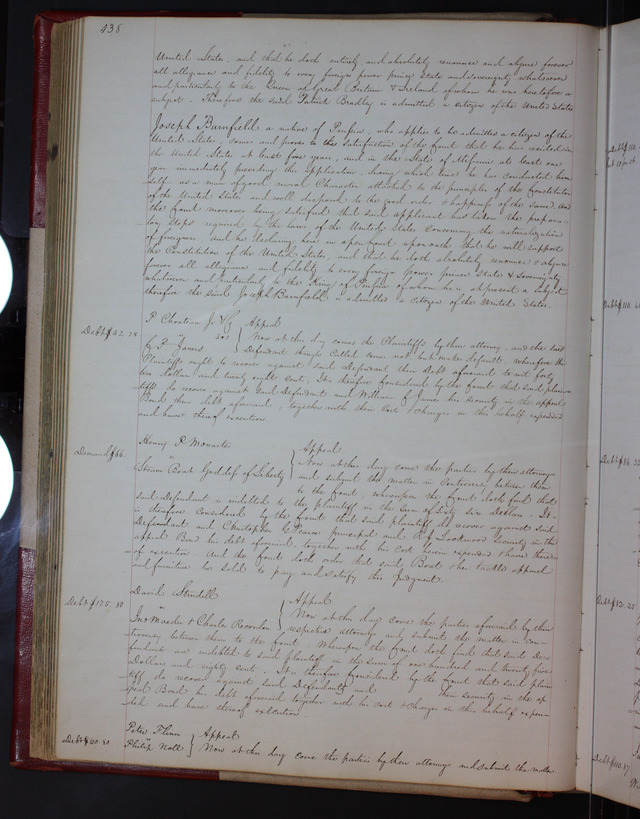 438
United States, and that he doth entirely and absolutely renounce and abjure forever
all allegiance and fidelity to every foreign power prince State and sovereignty whatsoever
and particularly to the Queen of Great Britain & Ireland of whom he was heretofore a
subject. Therefore the said Patrick Bradley is admitted a citizen of the United States
Joseph Barnfield a native of Prussia, who applies to be admitted a citizen of the
United States, comes and proves to the satisfaction of the Court that he has resided in
the United States at least five years, and in the State of Missouri at least one
year immediately preceding this application, during which time he has conducted him
self as a man of good moral Character attached to the principles of the Constitution
of the United States and well disposed to the good order & happiness of the same. And
the Court moreover being satisfied that said applicant has taken the prepara-
tory steps required by the laws of the United States concerning the naturalization
of foreigners, and he declaring here in open Court upon oath that he will support
the Constitution of the United States, and that he doth absolutely renounce & abjure
forever all allegiance and fidelity to every foreign power prince State & Sovereignty
whatsoever and particularly to the King of Prussia of whom he is at present a subject
therefore the said Joseph Barnfield is admitted a citizen of the United States.
P. Chouteau Jr & Co } Appeal
Debt $32.28
G. P. James } Now at this day comes the Plaintiffs by their attorney, and the said
Defendant though called comes not but makes default, wherefore the
Plaintiffs ought to recover against said Defendant their Debt aforesaid to wit
two dollars and twenty eight cents, It is therefore Considered by the Court that said plain-
tiffs do recover against said Defendant and William James his security in the appeal
Bond their debt aforesaid, together with their Costs & charges in this behalf expended
and have thereof execution.
Henry P. } Appeal
Demand $66.
vs
Steam Boat Goddess of Liberty } Now at this day come the parties by their attorneys
and submit the matter in Controversy between them
to the Court, whereupon the Court doth find that
said Defendant is indebted to the plaintiff in the sum of Sixty six Dollars. It
is therefore Considered by the Court that said plaintiff do recover against said
Defendant and Christopher C Pearce principal and R J Lockwood Security in the
appeal Bond his debt aforesaid together with his Cost herein expended & have thereof
execution. And the Court doth order that said Boat her tackle apparel
and furniture be Sold to pay and satisfy this Judgment.
David Standell } Appeal
Debt $125.80
vs
Jno & Charles } Now at this day come the parties aforesaid by their
respective attorneys and submit the matter in con-
troversy between them to the Court. Whereupon the Court doth find that said De-
fendants are indebted to said plaintiff in the sum of one hundred and twenty five
Dollars and eighty cents. It is therefore Considered by the Court that said plain-
tiff do recover against said Defendants and their security in the ap-
peal Bond his debt aforesaid together with his Cost & charges in this behalf expen-
ded and have thereof execution
Peter Flinn } Appeal
Debt $100.80
vs
Philip Noll } Now at this day come the parties by their attorneys and submit the matter